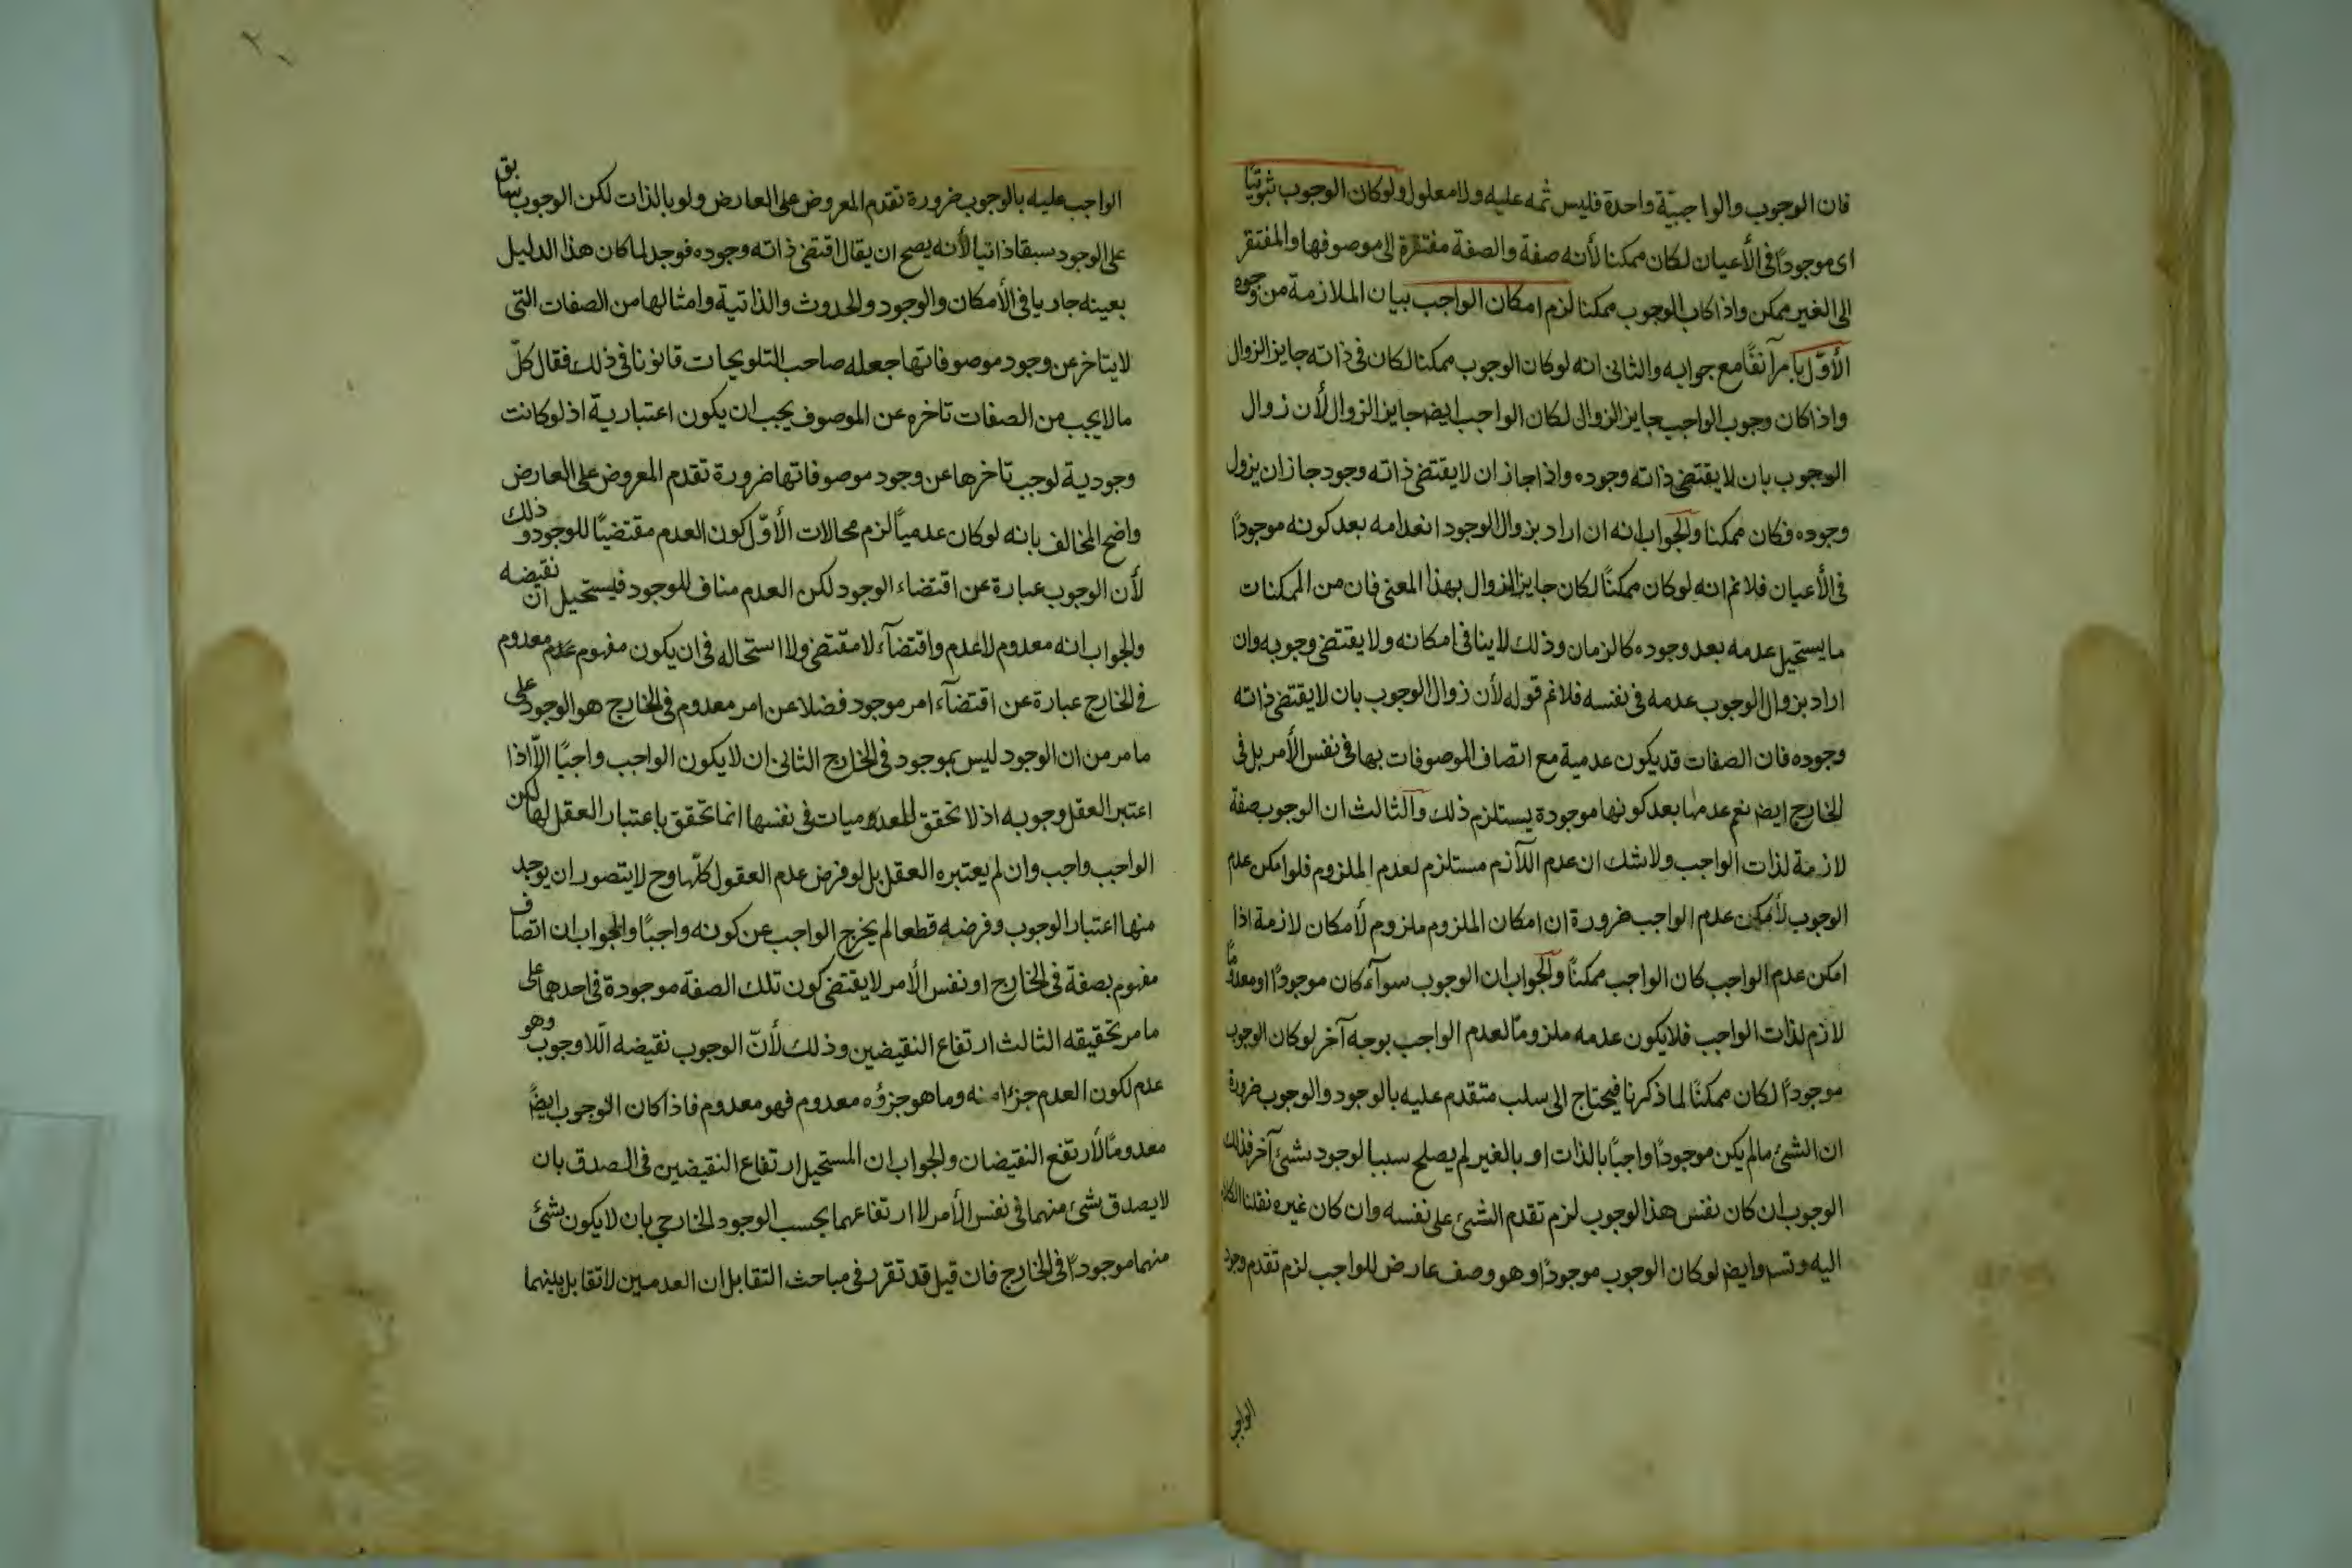 فان الوجوب والواجبيّة واحدة فليس ثمه عليه ولا معلول ولو كان الوجوب ثبوتيًا
اى موجودًا فى الأعيان لكان ممكنا لأنه صفة والصفة مفتقرة الى موصوفها والمفتقر
الى الغير ممكن واذا كان الوجوب ممكنا لزم امكان الواجب بيان الملازمة من وجوه
الأوّل ما مر آنفًا مع جوابه والثانى انه لو كان الوجوب ممكنا لكان فى ذاته جايز الزوال
واذا كان وجوب الواجب جايز الزوال لكان الواجب ايضا جايز الزوال لأن زوال
الوجوب بان لا يقتضى ذاته وجوده واذا جاز ان لا يقتضى ذاته وجود جاز ان يزول
وجوده فكان ممكنا والجواب انه ان اراد بزوال الوجود انعدامه بعد كونه موجودًا
فى الأعيان فلا نم انه لو كان ممكنًا لكان جايز الزوال بهذا المعنى فان من الممكنات
ما يستحيل عدمه بعد وجوده كالزمان وذلك لا ينافى امكانه ولا يقتضى وجوبه وان
اراد بزوال الوجوب عدمه فى نفسه فلا نم قوله لأن زوال الوجوب بان لا يقتضى ذاته
وجوده فان الصفات قد يكون عدمية مع اتصاف الموصوفات بها فى نفس الأمر بل فى
الخارج ايضا نعم عدمها بعد كونها موجودة يستلزم ذلك والثالث ان الوجوب صفة
لازمة لذات الواجب ولا شك ان عدم اللآزم مستلزم لعدم الملزوم فلو امكن عدم
الوجوب لأمكن عدم الواجب ضرورة ان امكان الملزوم ملزوم لأمكان لازمة اذا
امكن عدم الواجب كان الواجب ممكنًا والجواب ان الوجوب سوآء كان موجودًا او معدومًا
لازم لذات الواجب فلا يكون عدمه ملزومًا لعدم الواجب بوجه آخر لو كان الوجوب
موجودًا لكان ممكنًا لما ذكرنا فيحتاج الى سلب متقدم عليه بالوجود والوجوب ضرورة
ان الشئ ما لم يكن موجودًا واجبًا بالذات او بالغير لم يصلح سببا لوجود شئ آخر فذلك
الوجوب ان كان نفس هذا الوجوب لزم تقدم الشئ على نفسه وان كان غيره نقلنا الكلام
اليه وتس وايضا لو كان الوجوب موجودًا وهو وصف عارض للواجب لزم تقدم وجود
الواجب
الواجب عليه بالوجوب ضرورة تقدم المعروض على العارض ولو بالذات لكن الوجوب سابق
على الوجود سبقا ذاتيا لأنه يصح ان يقال اقتضى ذاته وجوده فوجد لما كان هذا الدليل
بعينه جاريا فى الأمكان والوجود والحدوث والذاتية وامثالها من الصفات التى
لا يتاخر عن وجود موصوفاتها جعله صاحب التلويحات قانونا فى ذلك فقال كلّ
ما لا يجب من الصفات تاخره عن الموصوف يجب ان يكون اعتبارية اذ لو كانت
وجودية لوجب تاخرها عن وجود موصوفاتها ضرورة تقدم المعروض على العارض
واضح المخالف بانه لو كان عدميًا لزم محالات الأوّل كون العدم مقتضيًا للوجود وذلك
لأن الوجوب عبارة عن اقتضاء الوجود لكن العدم مناف للوجود فيستحيل ان نقيضه
والجواب انه معدوم لا عدم واقتضآء لا مقتضى ولا استحاله فى ان يكون مفهوم عدم معدوم
فى الخارج عبارة عن اقتضآء امر موجود فضلا عن امر معدوم فى الخارج هو الوجود على
ما مر من ان الوجود ليس بموجود فى الخارج الثانى ان لا يكون الواجب واجبًا الاّ اذا
اعتبر العقل وجوبه اذ لا تحقق للمعدوميات فى نفسها انما تحقق باعتبار العقل لها لكن
الواجب واجب وان لم يعتبره العقل بل لو فرض عدم العقول كلّها وح لا يتصور ان يوجد
منها اعتبار الوجوب وفرضه قطعا لم يخرج الواجب عن كونه واجبًا والجواب ان اتصاف
مفهوم بصفة فى الخارج او نفس الأمر لا يقتضى كون تلك الصفة موجودة فى احدهما على
ما مر تحقيقه الثالث ارتفاع النقيضين وذلك لأنّ الوجوب نقيضه اللّاوجوب وهو
عدم لكون العدم جزا منه وما هو جزؤه معدوم فهو معدوم فاذا كان الوجوب ايضًا
معدومًا لأرتفع النقيضان والجواب ان المستحيل ارتفاع النقيضين فى الصدق بان
لا يصدق شئ منهما فى نفس الأمر لا ارتفاعهما بحسب الوجود الخارجى بان لا يكون شئ
منهما موجودًا فى الخارج فان قيل قد تقرر فى مباحث التقابل ان العدميين لا تقابل بينهما